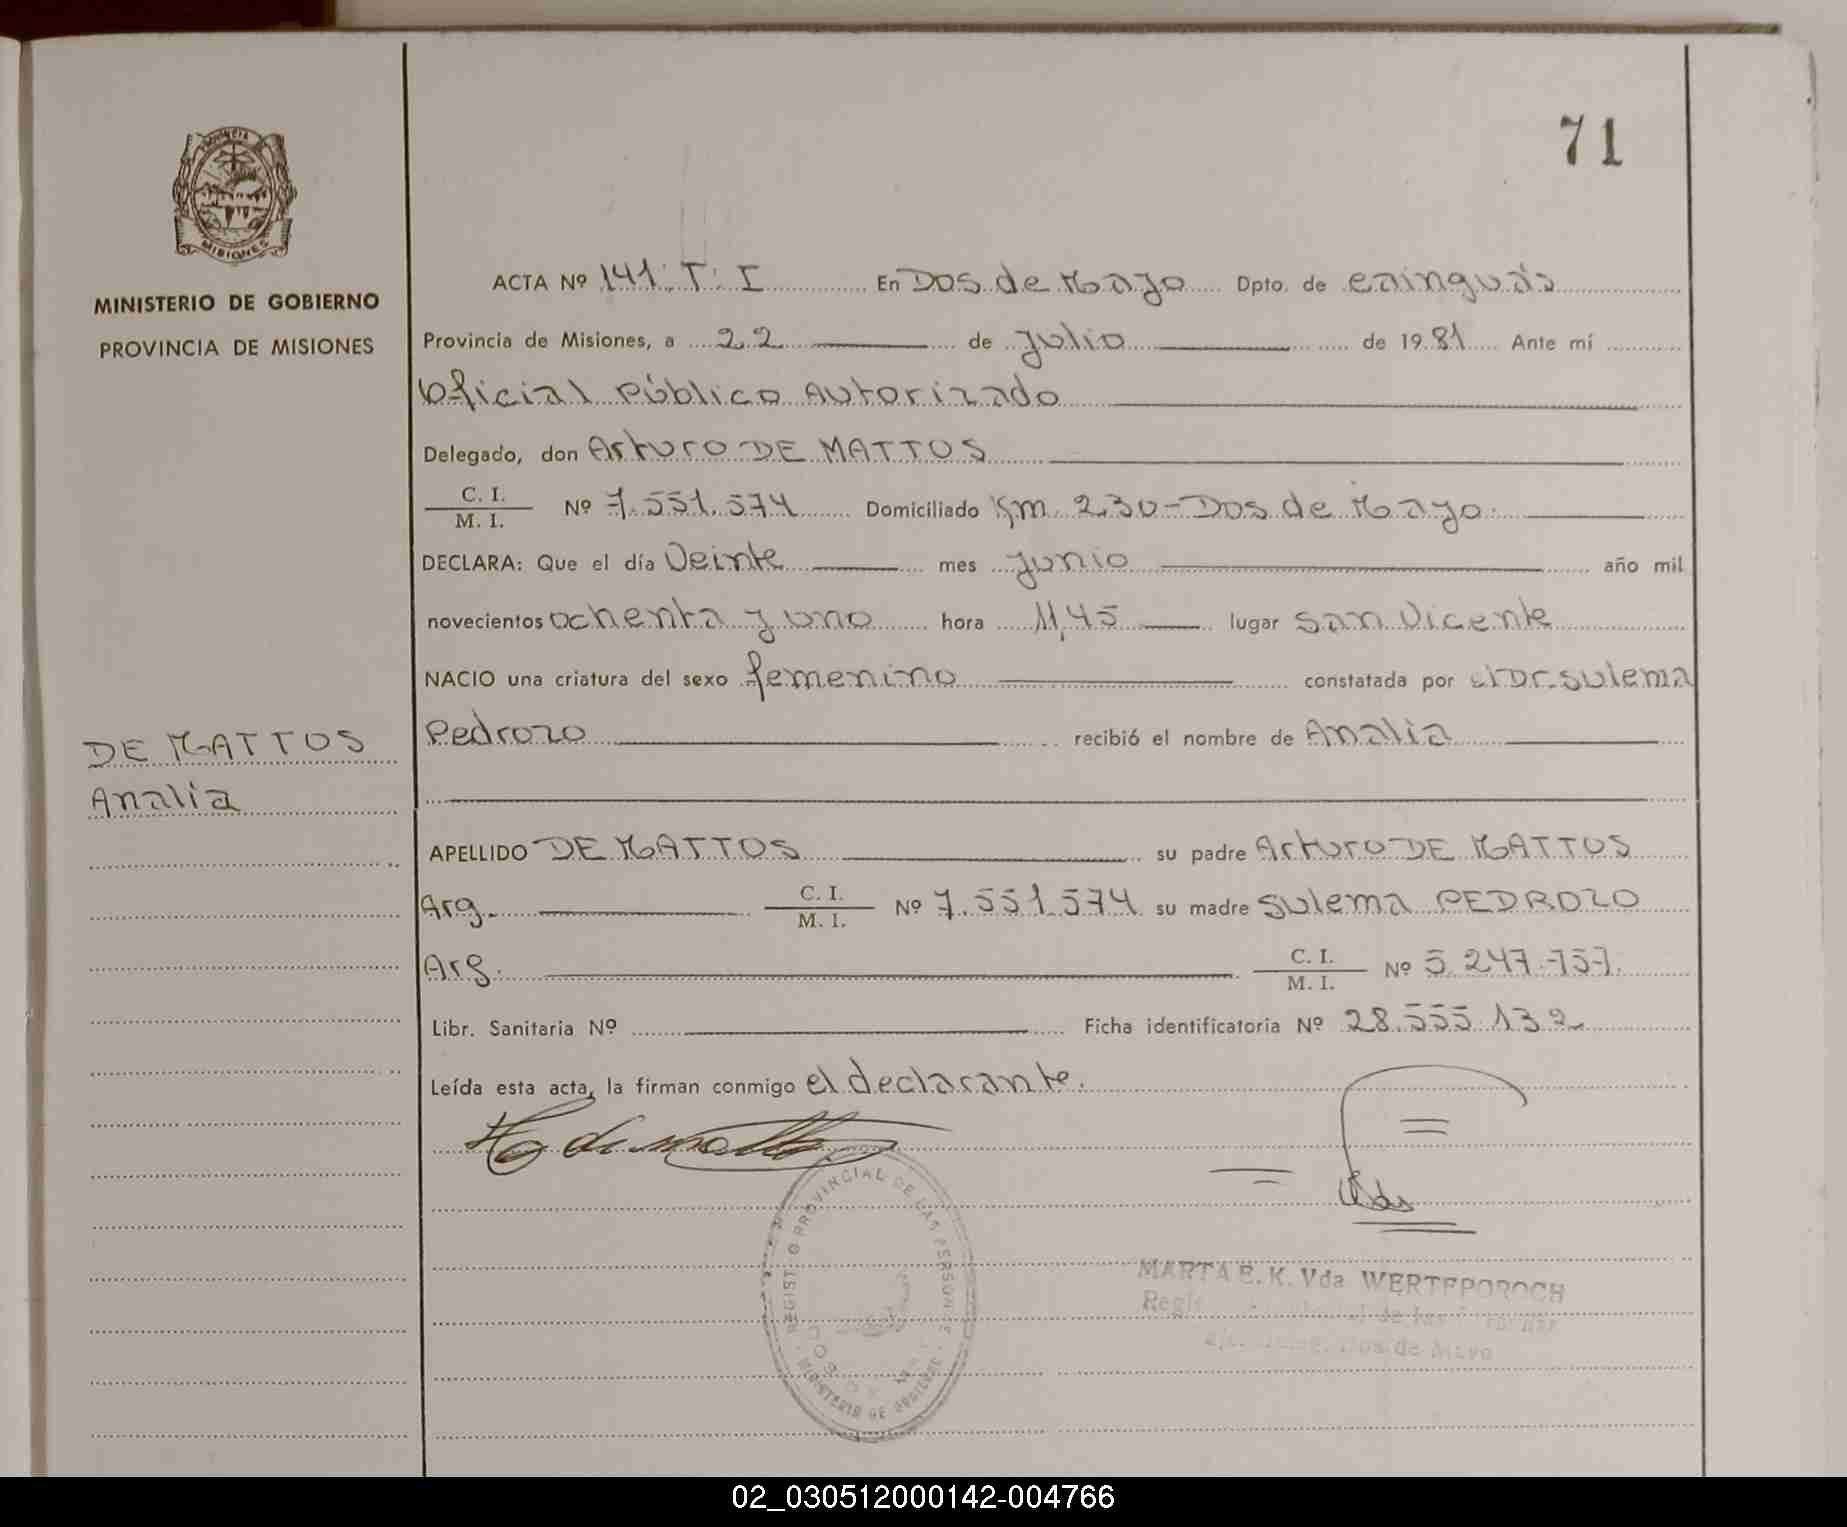 71
PROVINCIA DE
MISIONES
MINISTERIO DE GOBIERNO
PROVINCIA DE MISIONES
ACTA Nº 141: T: I En Dos de Mayo Dpto. de cainguás
Provincia de Misiones, a 22 de julio de 1981 Ante mí
Oficial Público Autorizado
Delegado, don Arturo DE MATTOS
C. I.
M. I. Nº 7.551.574 Domiciliado Km 230-Dos de Mayo.
DECLARA: Que el día Veinte mes junio año mil
novecientos ochenta y uno hora 11,45 lugar San Vicente
NACIO una criatura del sexo femenino constatada por el Dr. Sulema
Pedrozo recibió el nombre de Analia
DE MATTOS
Analia
APELLIDO DE MATTOS su padre Arturo DE MATTOS
Arg. C. I.
M. I. Nº 7.551.574 su madre Sulema PEDROZO
Arg. C. I.
M. I. Nº 5.247.757.
Libr. Sanitaria Nº Ficha identificatoria Nº 28.555.132
Leída esta acta, la firman conmigo el declarante.
de mattos
REGISTRO PROVINCIAL DE LAS PERSONAS
MINISTERIO DE GOBIERNO
MARTA E. K. Vda WERTEPOROCH
de las
Dos de Mayo
02_030512000142-004766